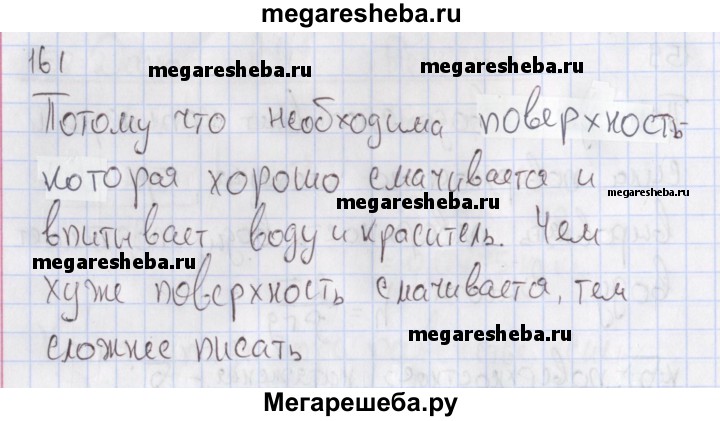 megaresheba.ru
161
megaresheba.ru
megaresheba.ru
Потому что необходима поверхность
которая хорошо смачивается и
megaresheba.ru
megaresheba.ru
впитывает воду и краситель. Чем
megaresheba.ru
хуже поверхность смачивается, тем
megaresheba.ru
сложнее писать
Мегарешеба.ру